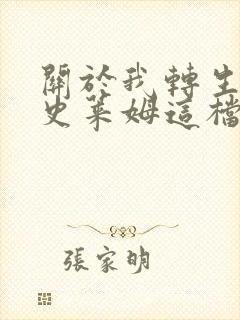 關於我轉生
史萊姆這檔
張家明